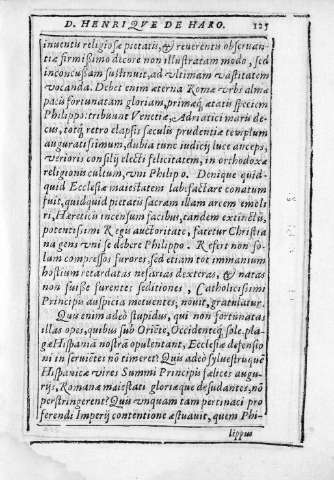 D. HENRIQVE DE HARO. 125
inuentu religiosæ pietatis, & reuerentis obseruan-
tiæ firmissimo decore non illustratam modo, sed
inconcussam sustinuit, ad vltimam vastitatem
vocanda. Debet enim æterna Romæ vrbs alma
pacis fortunatam gloriam, primæq, ætatis speciem
Philippo: tribuunt Venetiæ, Adriatici maris de-
cus, totq, retro elapsis sæculis prudentiæ templum
auguratissimum, dubia tunc iudicij luce anceps,
verioris consilij electi felicitatem, in orthodoxæ
religionis cultum, vni Philippo. Denique quid-
quid Ecclesiæ maiestatem labefactare conatum
fuit, quidquid pietatis sacram illam arcem emoli
ri, Hæreticis incensum facibus, tandem extinctũ,
potentissimi Regis auctoritate, fatetur Christia
na gens vni se debere Philippo. Refert non so-
lum compressos furores, sed etiam tot immanium
hostium retardatas nefarias dexteras, & natas
non fuisse furentes seditiones, Catholicissimi
Principis auspicia metuentes; nouit, gratulatur.
Quis enim adeò stupidus, qui non fortunatas
illas opes, quibus sub Oriẽte, Occidenteq, sole, pla-
gæ Hispaniã nostrã opulentant, Ecclesiæ defensio
ni inseruictes nõ timeret? Quis adeò syluestris, quẽ
Hispanicæ vires Summi Principis fælices augu-
rijs, Romanæ maiestatis gloriæque desudantes, nõ
perstringerent? Quis vnquam tam pertinaci pro
ferendi Imperij contentione æstuauit, quem Phi-
lippus